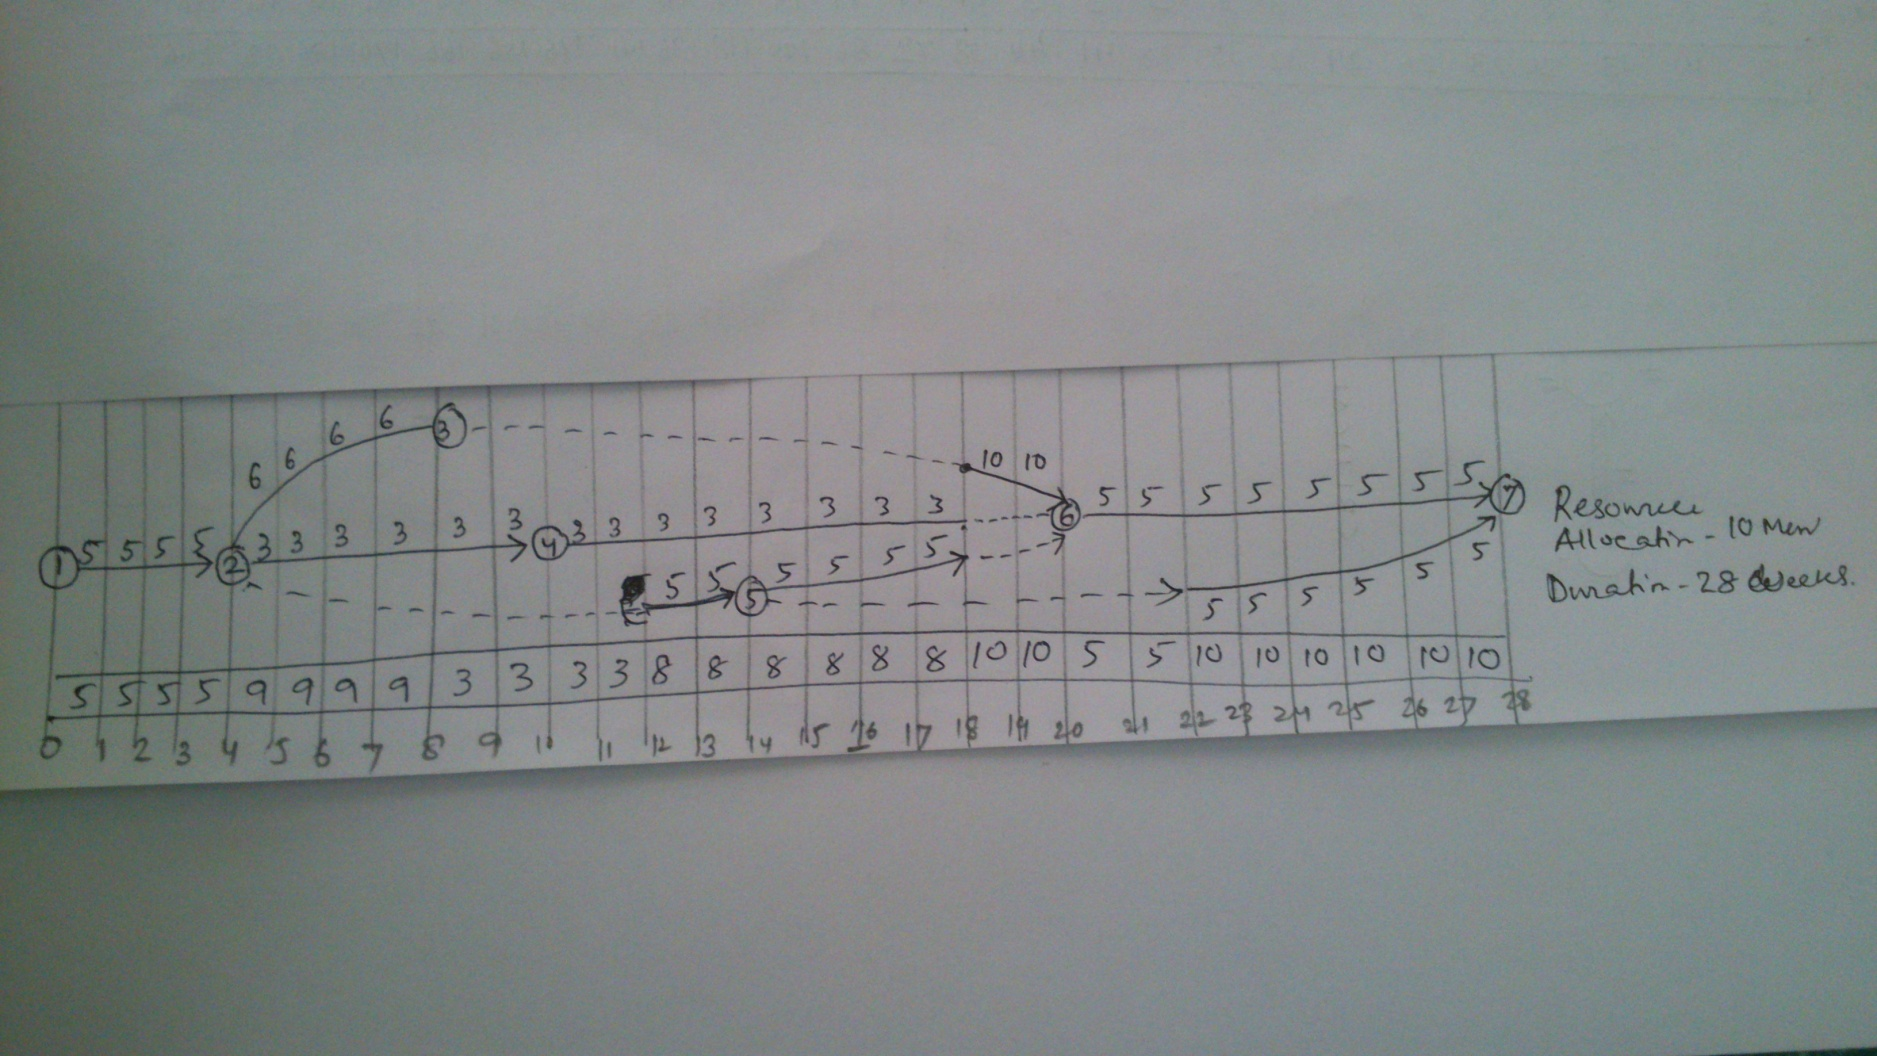 6 6 6 6 3
10 10
1 5 5 5 5 2 3 3 3 3 3 3 4 3 3 3 3 3 3 3 3 6 5 5 5 5 5 5 5 5 7
5 5 5 5 5 5 5
5 5 5 5 5 5
5 5 5 5 9 9 9 9 3 3 3 3 8 8 8 8 8 8 10 10 5 5 10 10 10 10 10 10
0 1 2 3 4 5 6 7 8 9 10 11 12 13 14 15 16 17 18 19 20 21 22 23 24 25 26 27 28
Resource
Allocatin - 10 Men
Duratin - 28 Weeks.